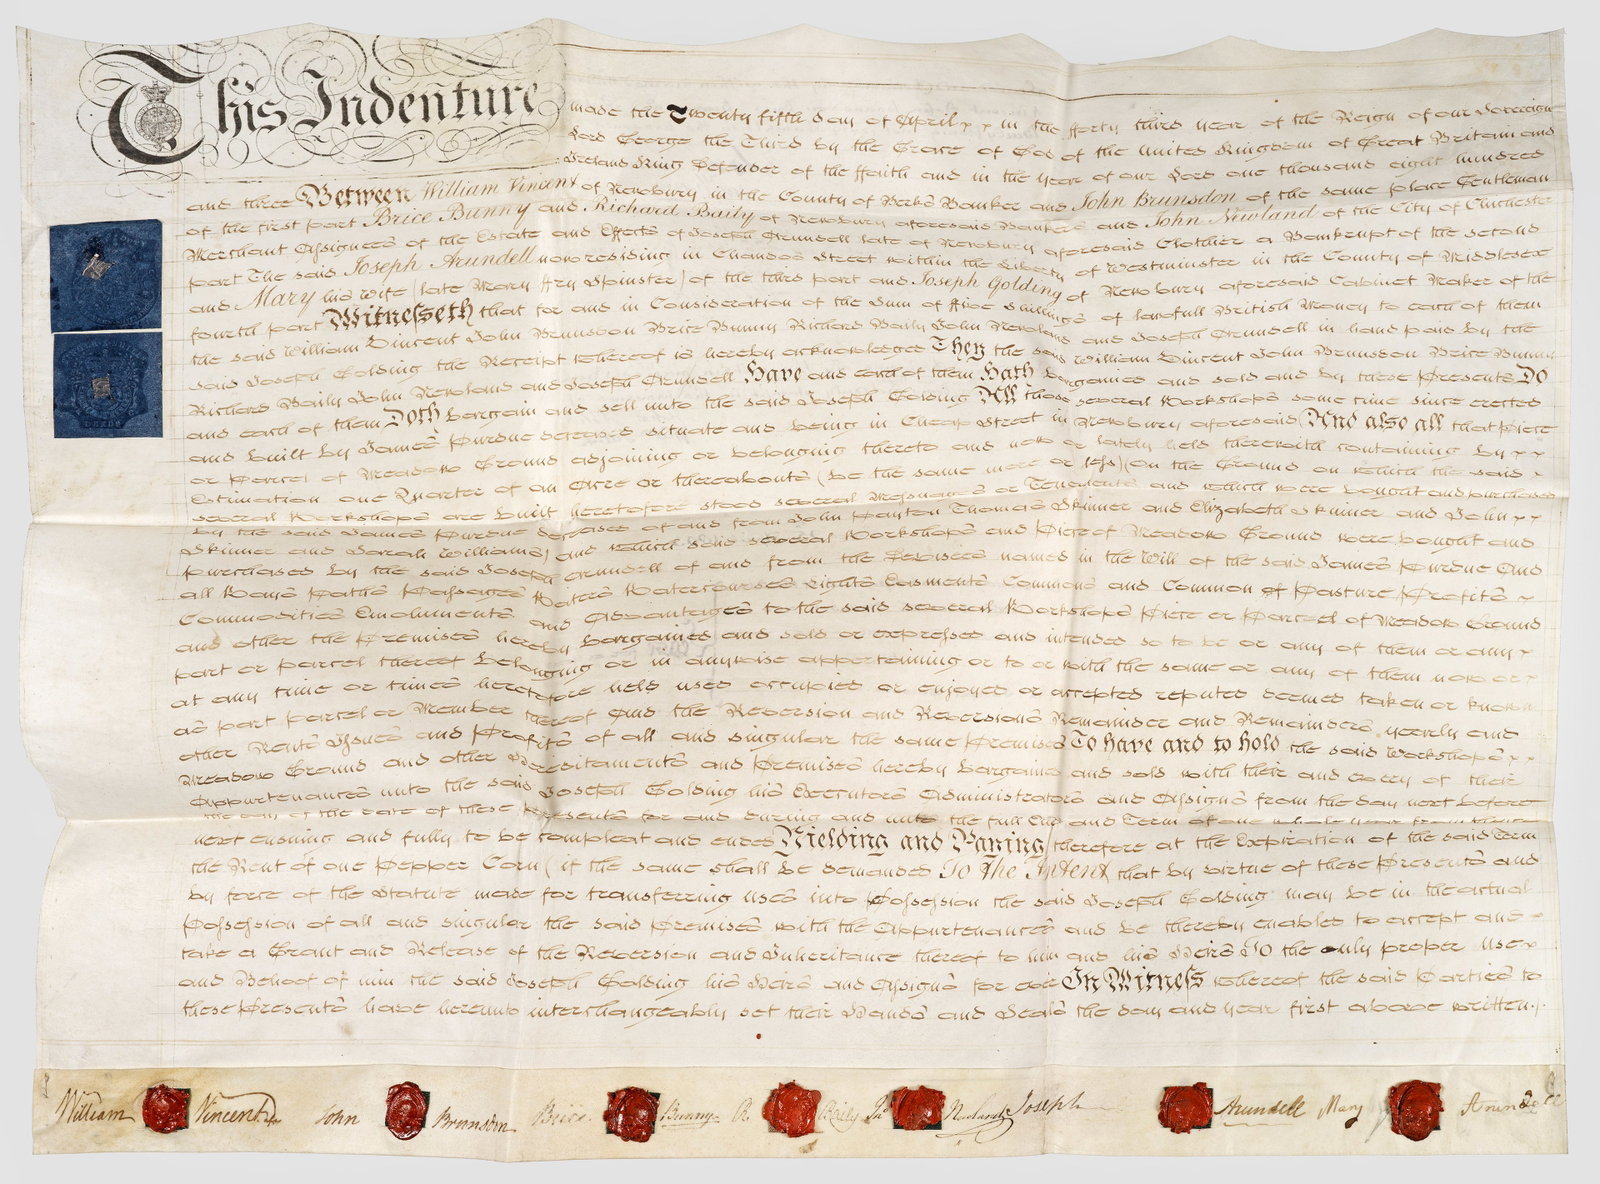 This Indenture made the Twenty fifth day of April x x in the fforty third year of the Reign of our Sovereign
Lord George the Third by the Grace of God of the United Kingdom of Great Britain and
Ireland King Defender of the ffaith and in the Year of our Lord one thousand eight hundred
and three Between William Vincent of Newbury in the County of Berks Banker and John Brunsdon of the same place Gentleman
of the first part Brice Bunny and Richard Baily of Newbury aforesaid Bankers and John Newland of the City of Chichester
Merchant Assignees of the Estate and Effects of Joseph Arundell late of Newbury aforesaid Clothier a Bankrupt of the second
part The said Joseph Arundell now residing in Chandos Street within the Liberty of Westminster in the County of Middlesex
and Mary his Wife (late Mary ffry Spinster) of the third part and Joseph Golding of Newbury aforesaid Cabinet Maker of the
fourth part Witnesseth that for and in Consideration of the Sum of ffive Shillings of lawfull British Money to each of them
the said William Vincent John Brunsdon Brice Bunny Richard Baily John Newland and Joseph Arundell in hand paid by the
said Joseph Golding the Receipt whereof is hereby acknowledged They the said William Vincent John Brunsdon Brice Bunny
Richard Baily John Newland and Joseph Arundell Have and each of them Hath bargained and sold and by these Presents Do
and each of them Doth bargain and sell unto the said Joseph Golding All those several Workshops some time since erected
and built by James Purdue deceased situate and being in Cheap Street in Newbury aforesaid And also all that Piece
or Parcel of Meadow Ground adjoining or belonging thereto and now or lately held therewith containing by x x
Estimation one Quarter of an Acre or thereabouts (be the same more or less) (on the Ground on which the said x
several Workshops are built heretofore stood several Messuages or Tenements and which were bought and purchased
by the said James Purdue deceased of and from John Paston Thomas Skinner and Elizabeth Skinner and John x x
Skinner and Sarah Williams) and which said several Workshops and Piece of Meadow Ground were bought and
purchased by the said Joseph Arundell of and from the Devisees named in the Will of the said James Purdue And
all Ways Paths Passages Waters Watercourses Lights Easments Commons and Common of Pasture Profits x
Commodities Emoluments and Advantages to the said several Workshops Piece or Parcel of Meadow Ground
and other the Premises hereby bargained and sold or expressed and intended so to be or any of them or any x
part or parcel thereof belonging or in anywise appertaining or to or with the same or any of them now or x
at any time or times heretofore held used occupied or enjoyed or accepted reputed deemed taken or known
as part parcel or Member thereof And the Reversion and Reversions Remainder and Remainders yearly and
other Rents Issues and Profits of all and singular the same Premises To have and to hold the said Workshops x x
Meadow Ground and other Hereditaments and Premises hereby bargained and sold with their and every of their
Appurtenances unto the said Joseph Golding his Executors Administrators and Assigns from the day next before
the day of the date of these Presents for and during and unto the full End and Term of one whole year from thence
next ensuing and fully to be compleat and ended Yielding and Paying therefore at the Expiration of the said Term
the Rent of one Pepper Corn (if the same shall be demanded To the Intent that by virtue of these Presents and
by force of the Statute made for transferring uses into Possession the said Joseph Golding may be in the actual
Possession of all and singular the said Premises with the Appurtenances and be thereby enabled to accept and x
take a Grant and Release of the Reversion and Inheritance thereof to him and his Heirs To the only proper Use x
and Behoof of him the said Joseph Golding his Heirs and Assigns for ever In Witness whereof the said Parties to
these Presents have hereunto interchangeably set their Hands and Seals the day and year first above written.
William Vincent John Brunsdon Brice Bunny R. Baily Jno Newland Joseph Arundell Mary Arundell